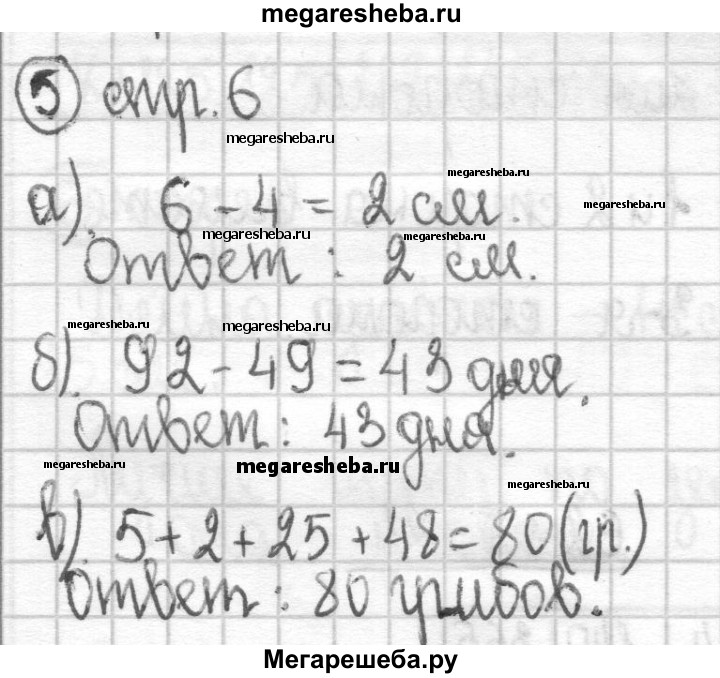 megaresheba.ru
5 стр. 6
megaresheba.ru
megaresheba.ru
а). 6 - 4 = 2 см.
megaresheba.ru
megaresheba.ru
megaresheba.ru
Ответ: 2 см.
megaresheba.ru
megaresheba.ru
б). 92 - 49 = 43 дня.
Ответ: 43 дня.
megaresheba.ru
megaresheba.ru
megaresheba.ru
в). 5 + 2 + 25 + 48 = 80 (гр.)
megaresheba.ru
Ответ: 80 грибов.
Мегарешеба.ру